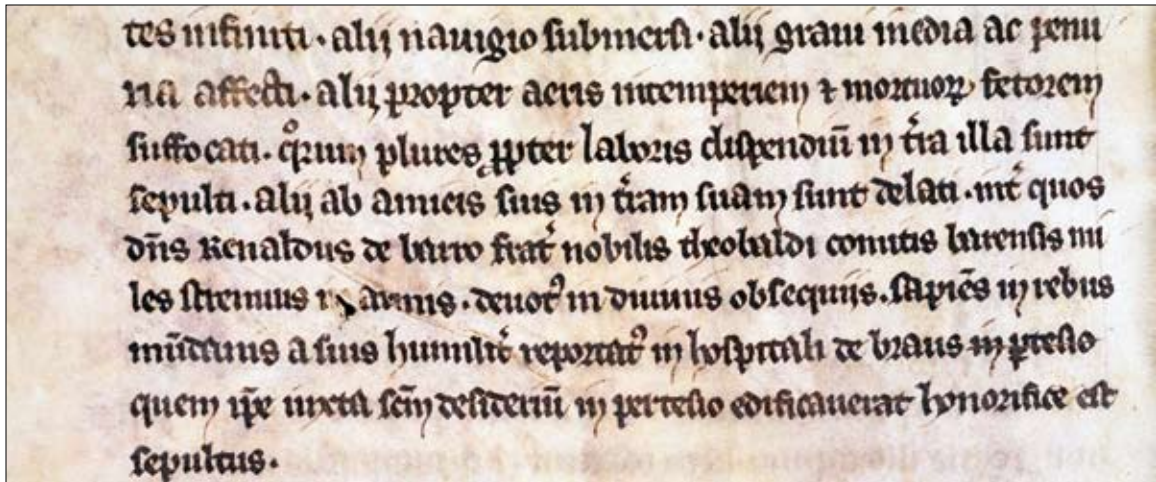 tes infiniti. alij nauigio submersi. alij graui inedia ac penu
ria affecti. alij propter aeris intemperiem ⁊ mortuoꝝ fetorem
suffocati. qͦrum plures ꝓpter laboris dispendiū in t̾ra illa sunt
sepulti. alij ab amicis suis in t̾ram suam sunt delati. int̾ quos
dn̄s Renaldus de barro frat̾ nobilis theobaldi comitis barensis mi
les strenuus armis. deuotꝰ in diuinis obsequiis. sapiēs in rebus
mūdanis a suis humilit̾ reportatꝰ in hospitali de braus in ꝑtesio
quem ip̄e iuxta scm̄ desideriū in pertesio edificauerat honorifice est
sepultus.